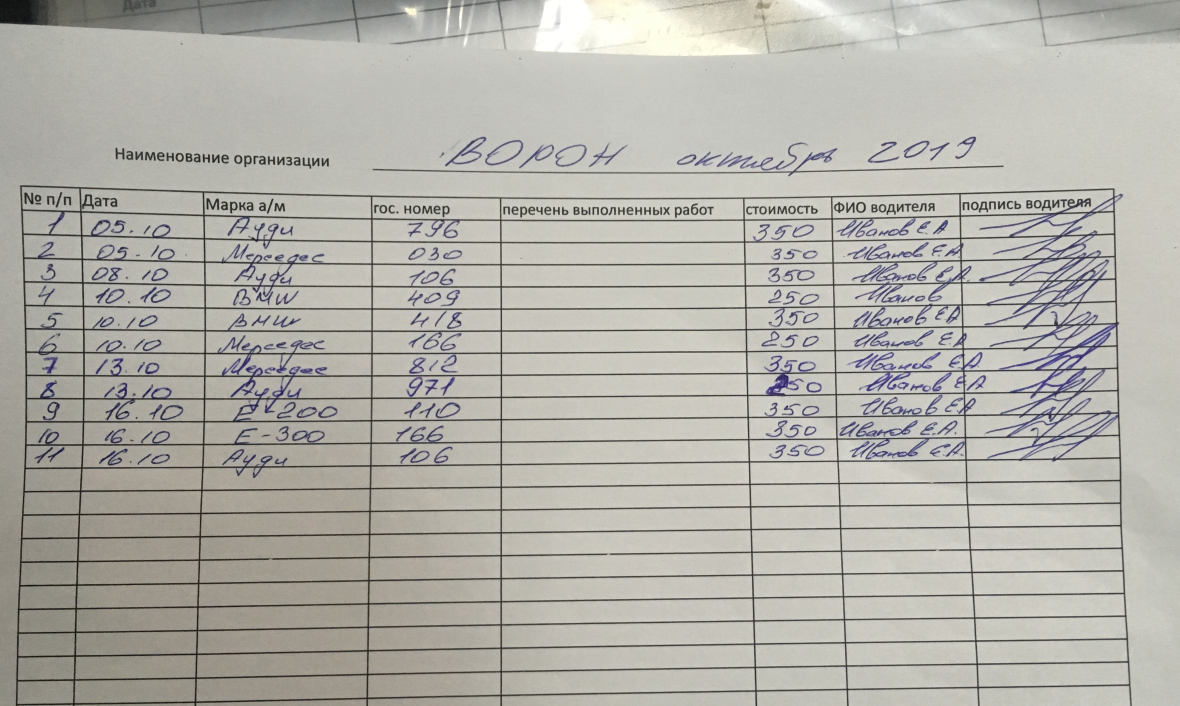 Дата
Наименование организации ВОРОН октябрь 2019
№ п/п Дата Марка а/м гос. номер перечень выполненных работ стоимость ФИО водителя подпись водителя
1 05.10 Ауди 796 350 Иванов Е.А
2 05.10. Мерседес 030 350 Иванов Е.А
3 08.10 Ауди 106 350 Иванов Е.А.
4 10.10 BMW 409 250 Иванов
5 10.10 BMW 418 350 Иванов ЕА
6 10.10 Мерседес 166 250 Иванов ЕА
7 13.10 Мерседес 812 350 Иванов ЕА
8 13.10 Ауди 971 250 Иванов ЕА
9 16.10 E-200 110 350 Иванов ЕА
10 16.10 E-300 166 350 Иванов Е.А.
11 16.10 Ауди 106 350 Иванов Е.А.